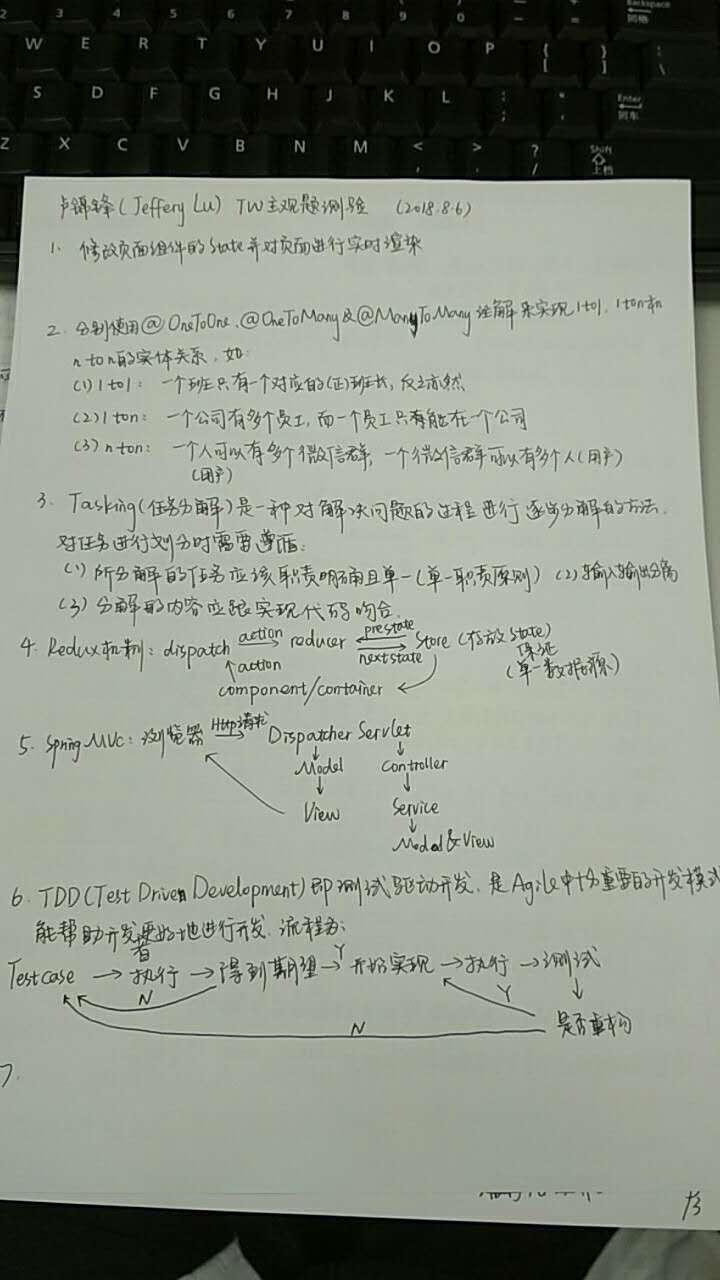 2 3 4 5 6 7 8 9 0 Backspace 回格
W E R T Y U I O P { [ } ] | \
S D F G H J K L : ; " ' Enter 回车
Z X C V B N M < , > . ? / Shift 上档
卢锦锋(Jeffery Lu) TW主观题测验 (2018.8.6)
1. 修改页面组件的State并对页面进行实时渲染
2. 分别使用@OneToOne、@OneToMany&@ManyToMany注解来实现1to1,1ton和
n to n的实体关系,如:
(1) 1to1: 一个班只有一个对应的(正)班长,反之亦然
(2) 1ton: 一个公司有多个员工,而一个员工只有能在一个公司
(3) n ton: 一个人可以有多个微信群,一个微信群可以有多个人(用户)
(用户)
3. Tasking(任务分解)是一种对解决问题的过程进行逐步分解的方法.
对任务进行划分时需要遵循:
(1) 所分解的任务应该职责明确且单一(单一职责原则) (2) 输入输出分离
(3) 分解的内容应跟实现代码吻合.
4. Redux机制: dispatch action→ reducer prestate← nextstate→ Store (存放State)
↑action 保证
component/container (单一数据源)
5. Spring MVC: 浏览器 Http请求→ Dispatcher Servlet
Model Controller
View Service
Model&View
6. TDD(Test Driven Development)即测试驱动开发,是Agile中十分重要的开发模式
能帮助开发者更好地进行开发.流程为:
Testcase → 执行 → 得到期望 Y→ 开始实现 → 执行 → 测试
N Y
是否重构
N
7.
1/3